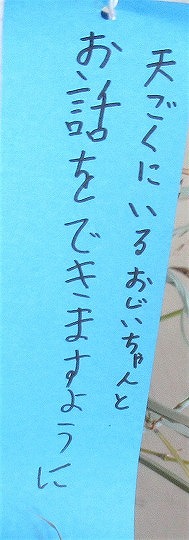 天ごくにいるおじいちゃんと
お話をできますように